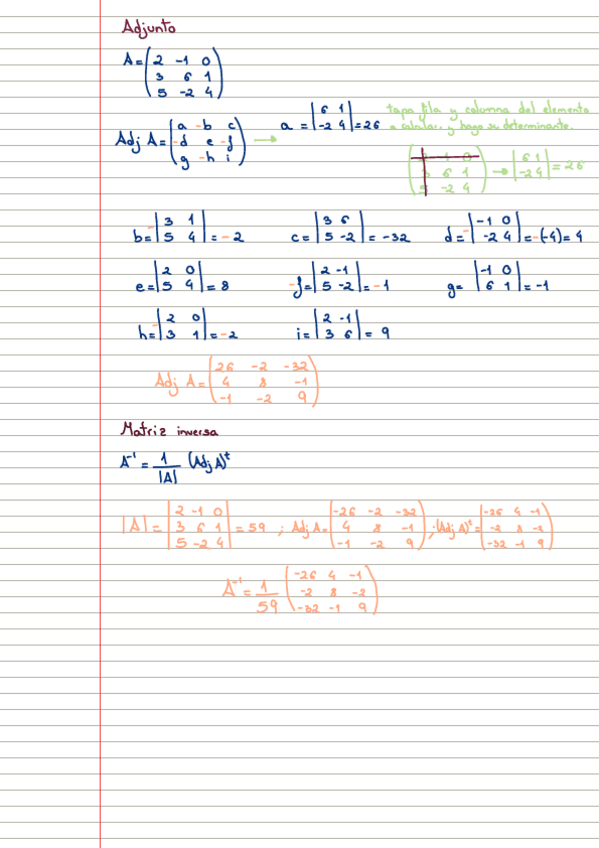 Adjunto
A = ( 2 -1 0
3 6 1
5 -2 4 )
Adj A = ( a -b c
-d e -f
g -h i ) → a = | 6 1
-2 4 | = 26
tapa fila y columna del elemento
a calcular y hago su determinante.
6 1
-2 4 → | 6 1
-2 4 | = 26
b = - | 3 1
5 4 | = -2 c = | 3 6
5 -2 | = -32 d = - | -1 0
-2 4 | = -(-4) = 4
e = | 2 0
5 4 | = 8 -f = | 2 -1
5 -2 | = -1 g = | -1 0
6 1 | = -1
h = - | 2 0
3 1 | = -2 i = | 2 -1
3 6 | = 9
Adj A = ( 26 -2 -32
4 8 -1
-1 -2 9 )
Matriz inversa
A⁻¹ = 1/|A| (Adj A)ᵗ
|A| = | 2 -1 0
3 6 1
5 -2 4 | = 59 ; Adj A = ( -26 -2 -32
4 8 -1
-1 -2 9 ) ; (Adj A)ᵗ = ( -26 4 -1
-2 8 -2
-32 -1 9 )
A⁻¹ = 1/59 ( -26 4 -1
-2 8 -2
-32 -1 9 )